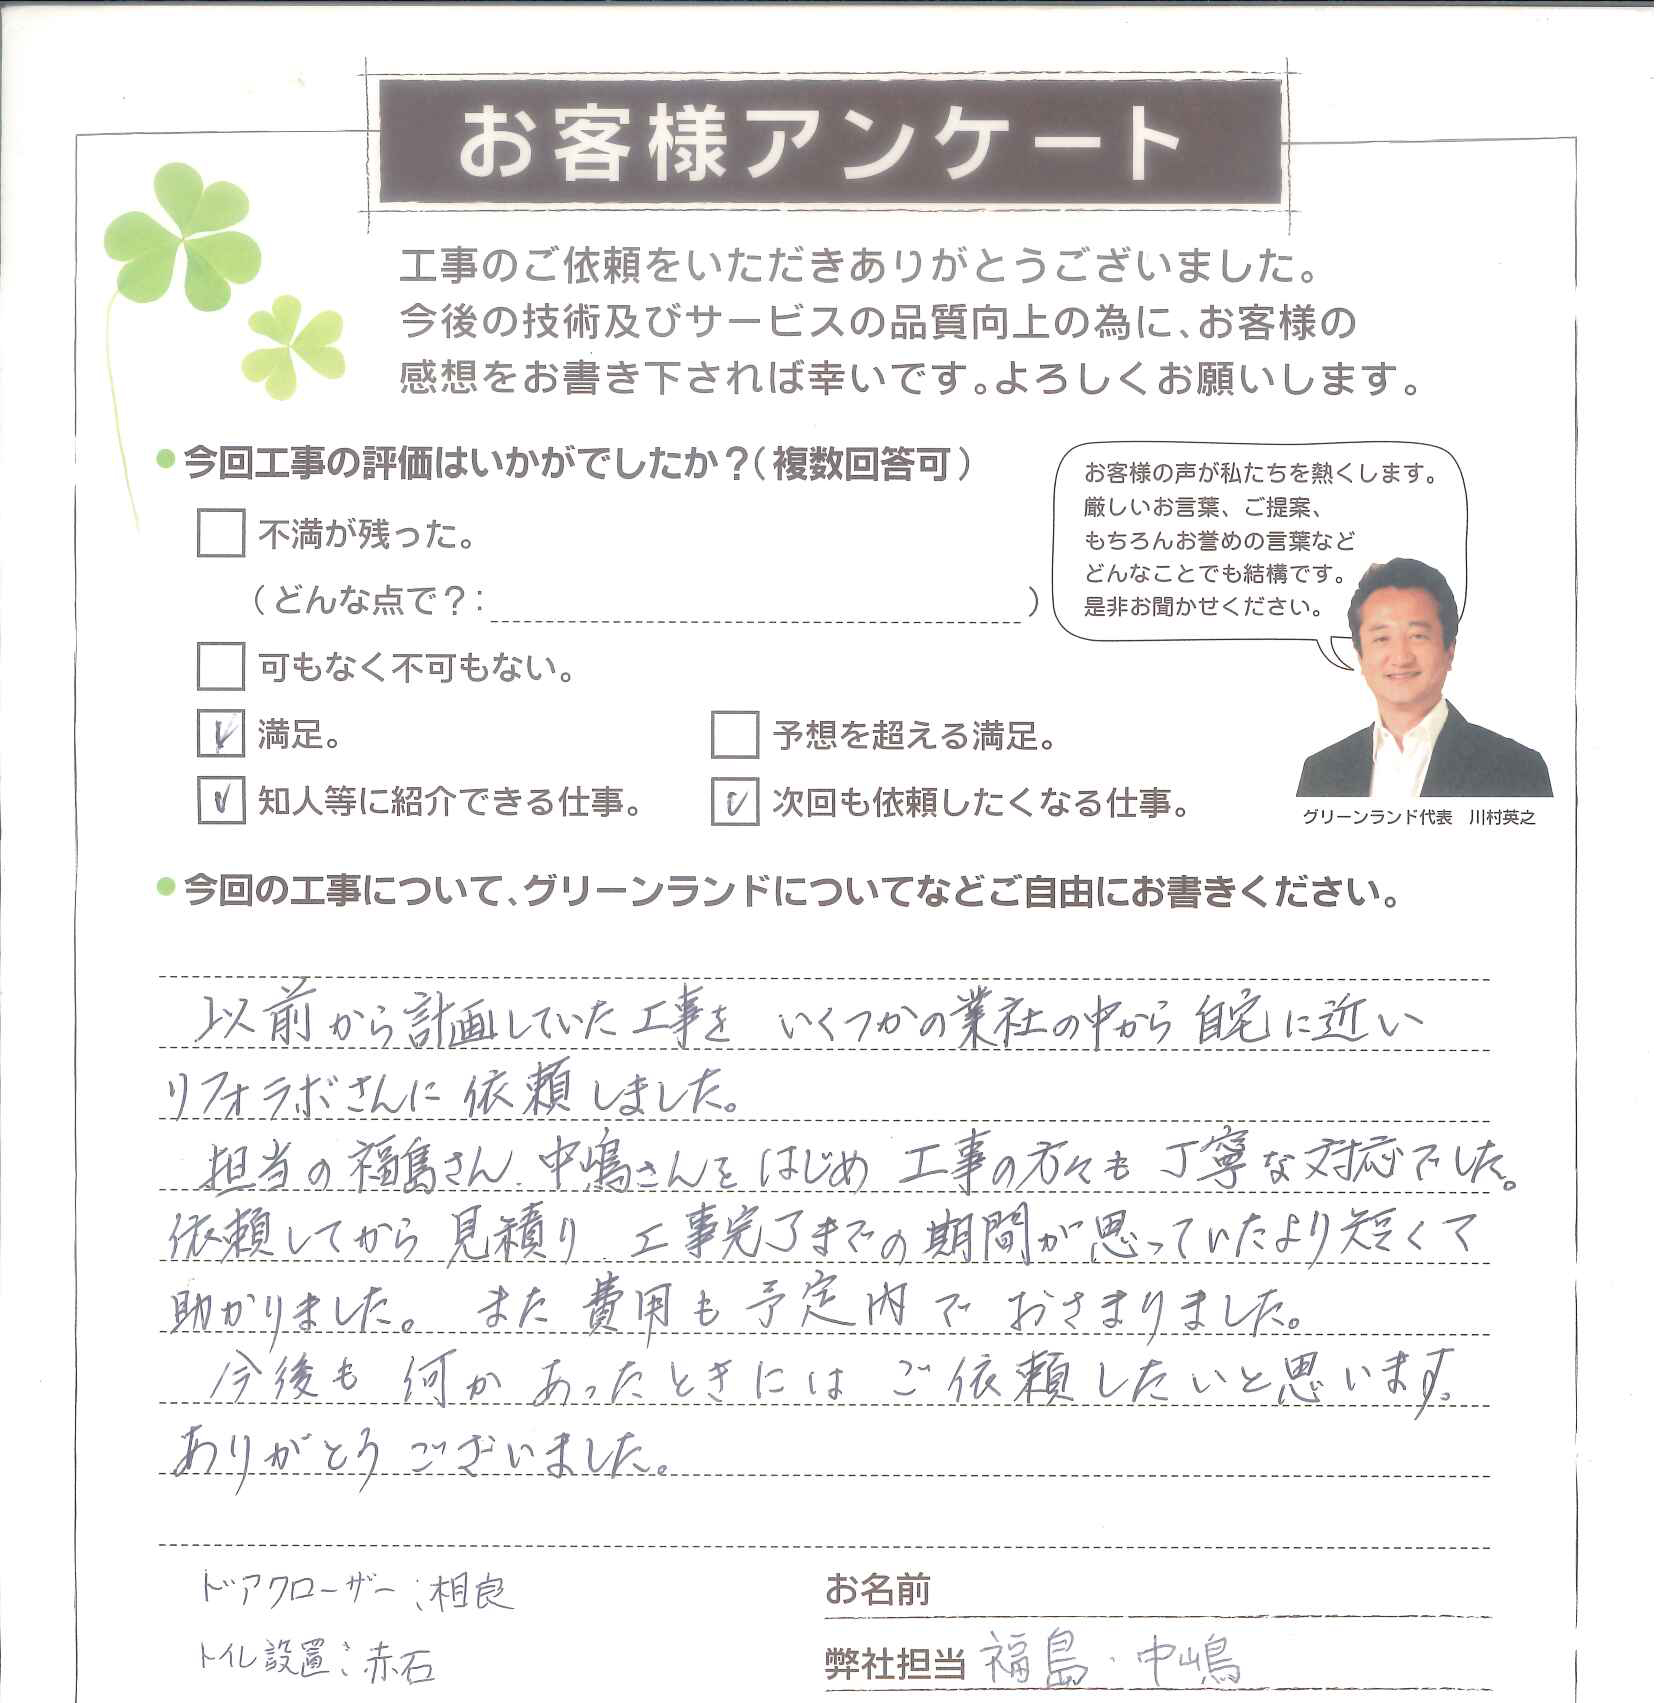 お客様アンケート
工事のご依頼をいただきありがとうございました。
今後の技術及びサービスの品質向上の為に、お客様の
感想をお書き下されば幸いです。よろしくお願いします。
今回工事の評価はいかがでしたか？（複数回答可）
不満が残った。
（どんな点で？： ）
可もなく不可もない。
満足。
予想を超える満足。
知人等に紹介できる仕事。
次回も依頼したくなる仕事。
お客様の声が私たちを熱くします。
厳しいお言葉、ご提案、
もちろんお誉めの言葉など
どんなことでも結構です。
是非お聞かせください。
グリーンランド代表　川村英之
今回の工事について、グリーンランドについてなどご自由にお書きください。
以前から計画していた工事を いくつかの業社の中から 自宅に近い
リフォラボさんに 依頼しました。
担当の福島さん、中嶋さんをはじめ 工事の方々も 丁寧な対応でした。
依頼してから 見積り、工事完了までの期間が思っていたより短くて
助かりました。 また 費用も予定内で おさまりました。
今後も 何か あったときには ご依頼したいと思います。
ありがとうございました。
ドアクローザー：相良
トイレ設置：赤石
お名前
弊社担当 福島・中嶋